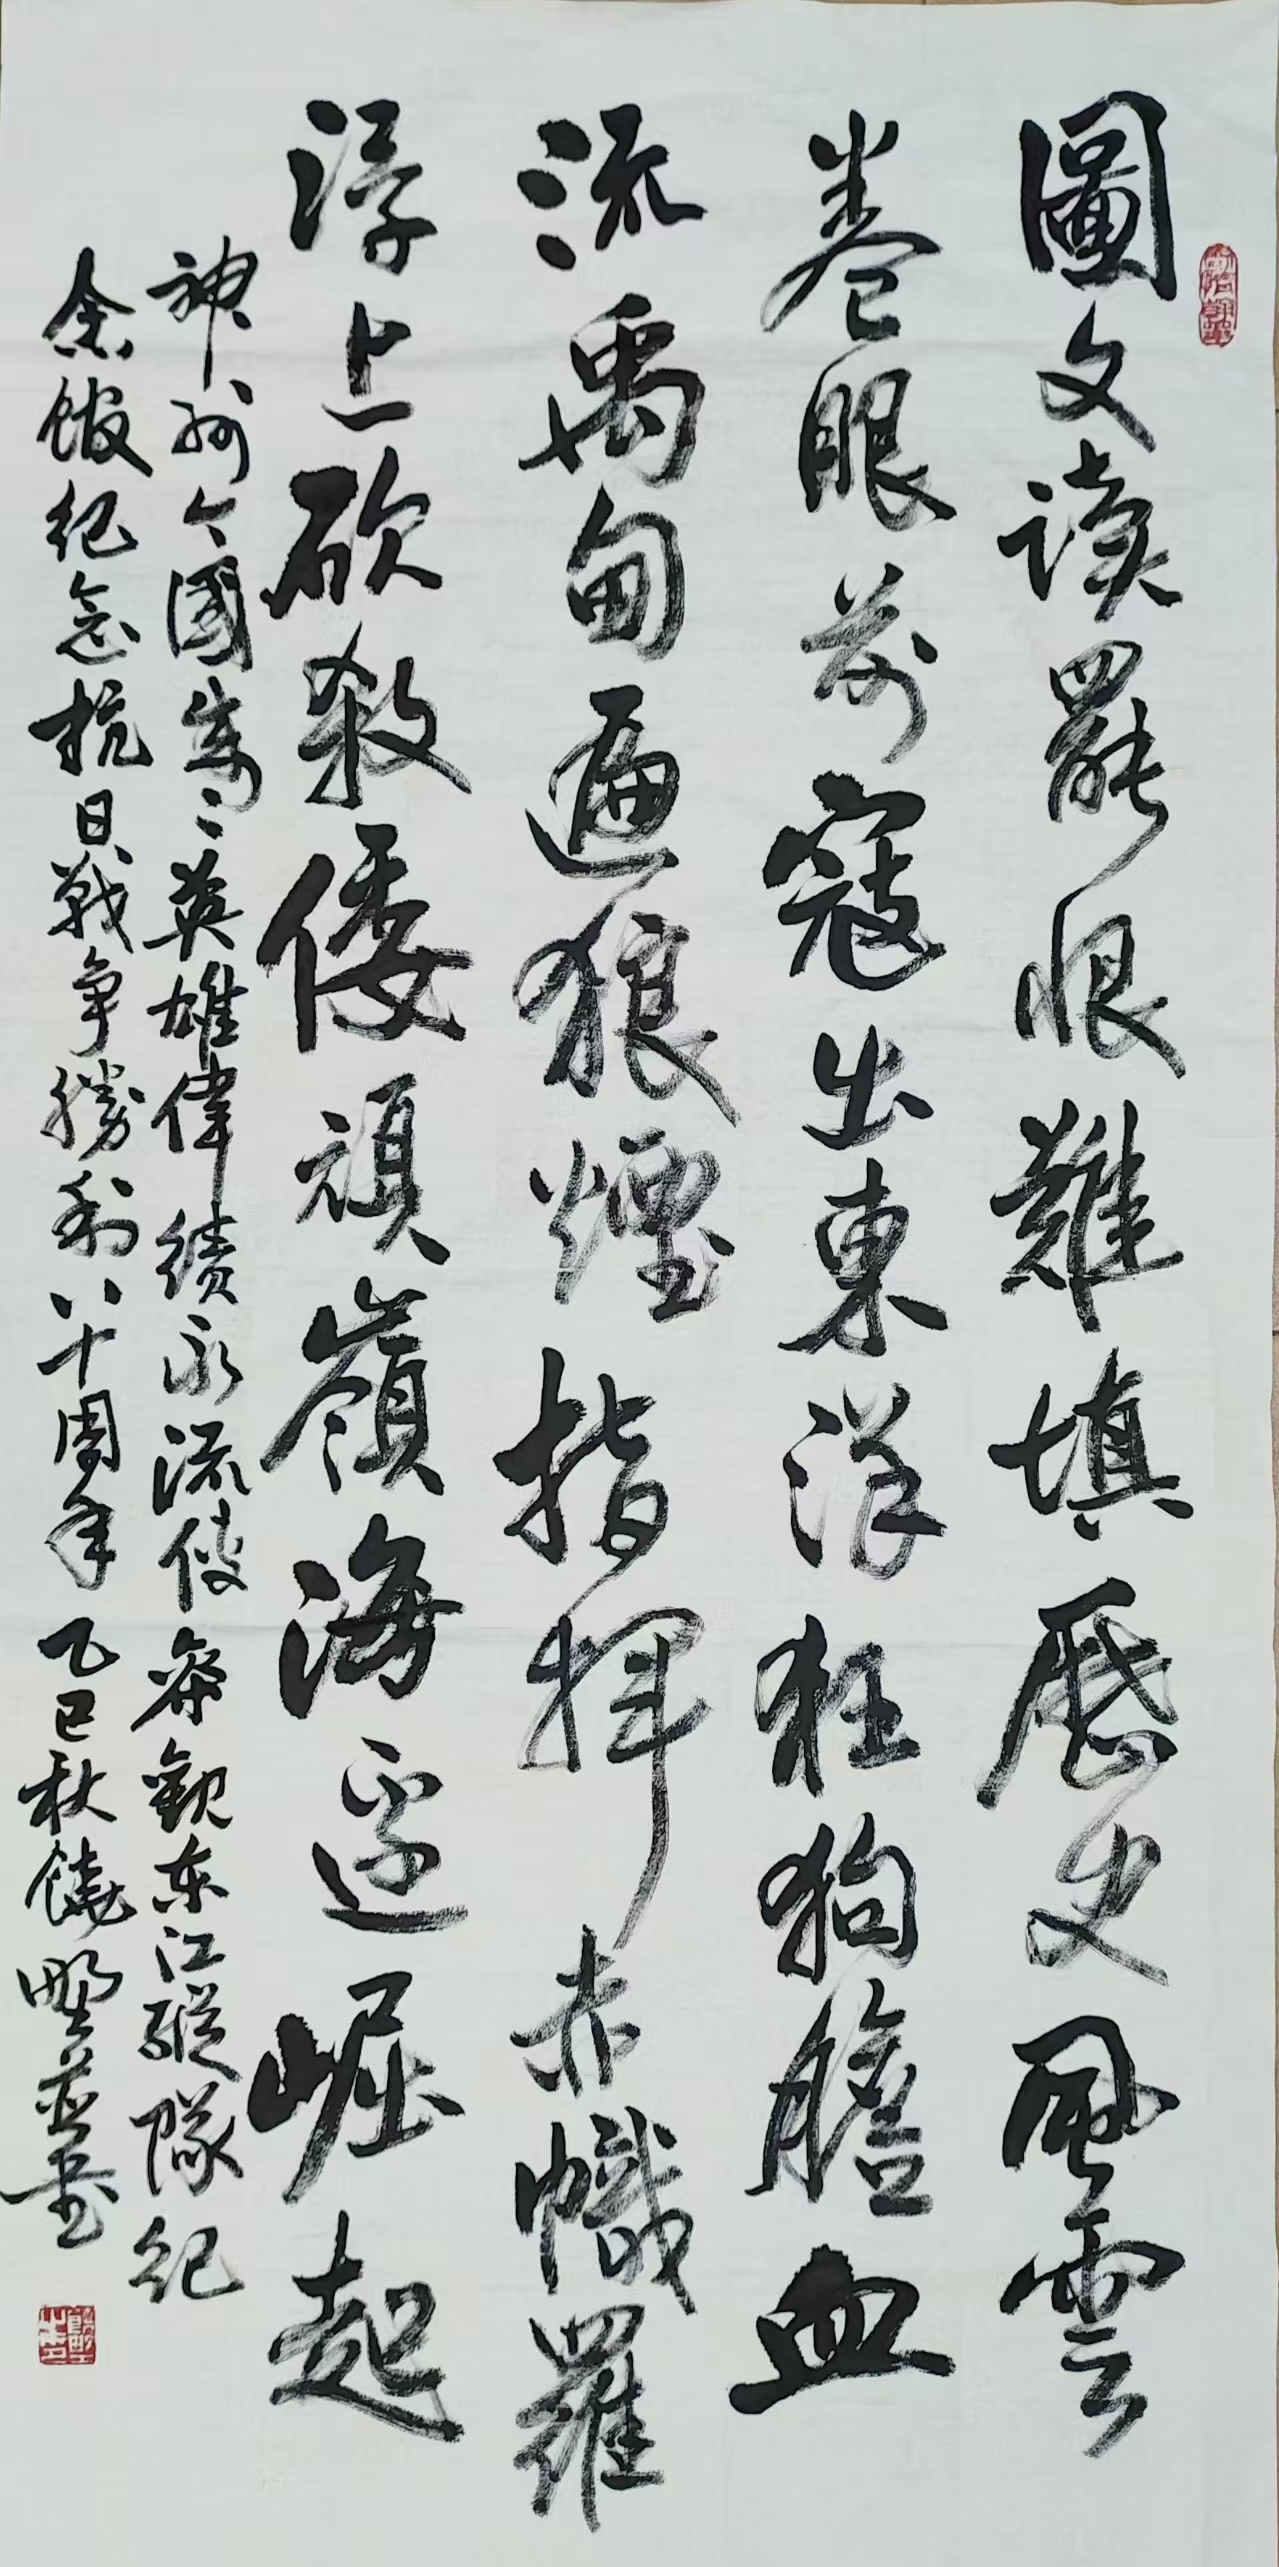 圖文读罷恨難填歷史風雲
卷眼前寇出東洋狂狗膽血
流禹甸遍狼煙指揮赤幟羅
浮上砍殺倭頑嶺海邊崛起
神州今國 英雄偉績永流傳 參觀东江縱隊紀
念館纪念抗日戰争勝利八十周年 乙巳秋饒 並書